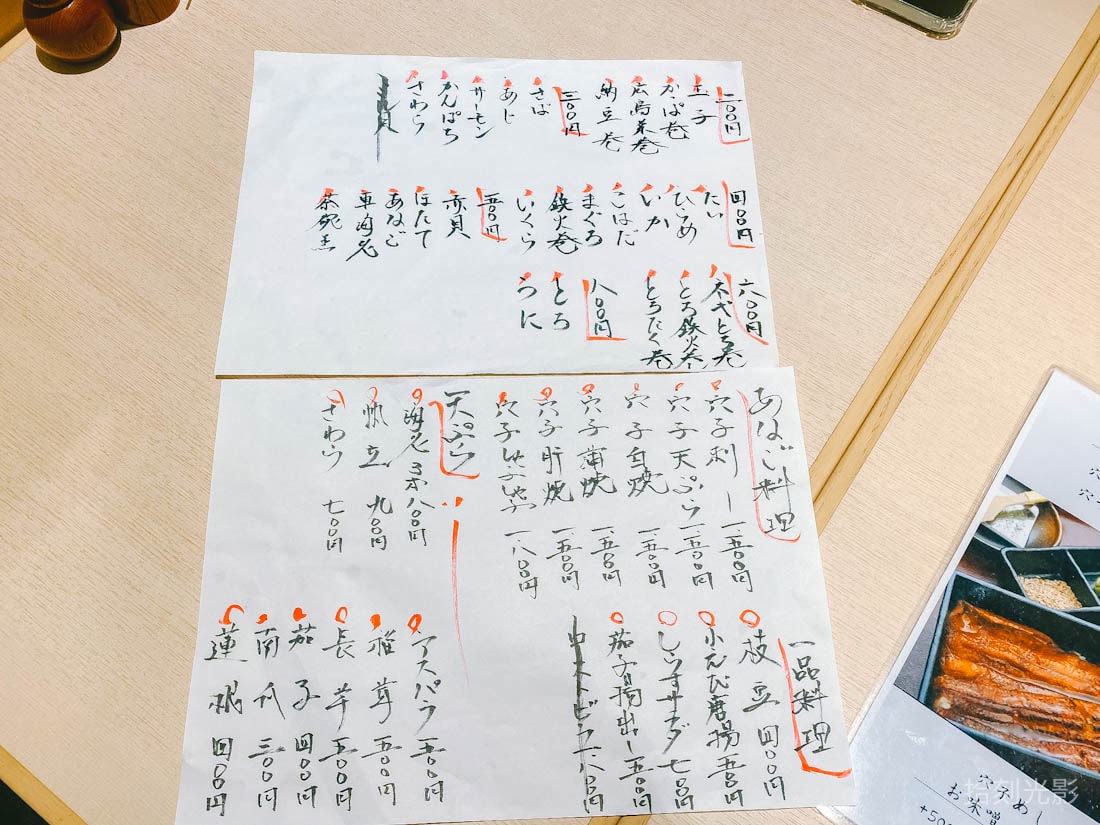 二〇〇円
玉子
かっぱ巻
広島菜巻
納豆巻
三〇〇円
さば
あじ
サーモン
かんぱち
さわら
四〇〇円
たい
ひらめ
いか
こはだ
まぐろ
鉄火巻
いくら
五〇〇円
赤貝
ほたて
あなご
車海老
茶碗蒸
六〇〇円
ネギとろ巻
とろ鉄火巻
とろたく巻
八〇〇円
とろ
うに
あなご料理
穴子刺し 一、五〇〇円
穴子天ぷら 一、五〇〇円
穴子白焼 一、五〇〇円
穴子蒲焼 一、五〇〇円
穴子肝焼 一、五〇〇円
穴子しゃぶしゃぶ 一、八〇〇円
天ぷら
海老 八〇〇円
帆立 九〇〇円
さわら 七〇〇円
一品料理
枝豆 四〇〇円
小えび唐揚 五〇〇円
七〇〇円
茄子揚出し 五〇〇円
アスパラ 五〇〇円
椎茸 五〇〇円
長芋 五〇〇円
茄子 四〇〇円
南瓜 三〇〇円
蓮根 四〇〇円
穴子めし
お味噌
+50
拾刻光影